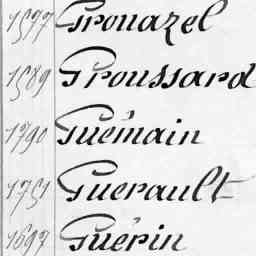 1597 Grouazel
1589 Groussard
1790 Guémain
1751 Guerault
1697 Guérin